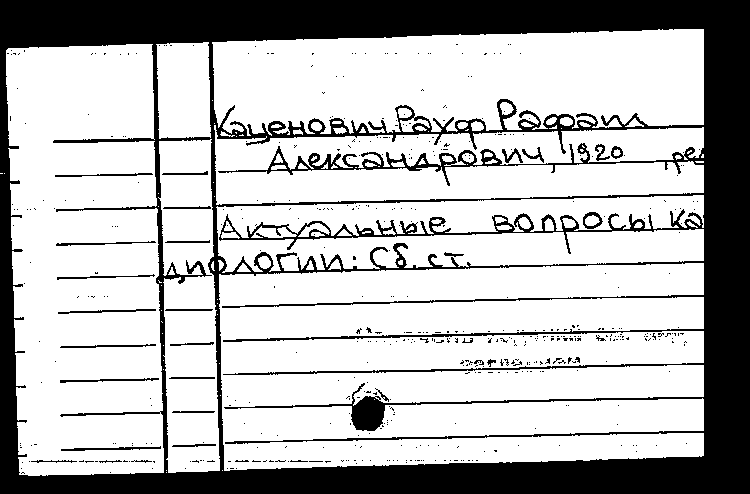 Каценович, Рауф Рафаил
Александрович, 1920 , ред
Актуальные вопросы ка
диологии: Сб. ст.